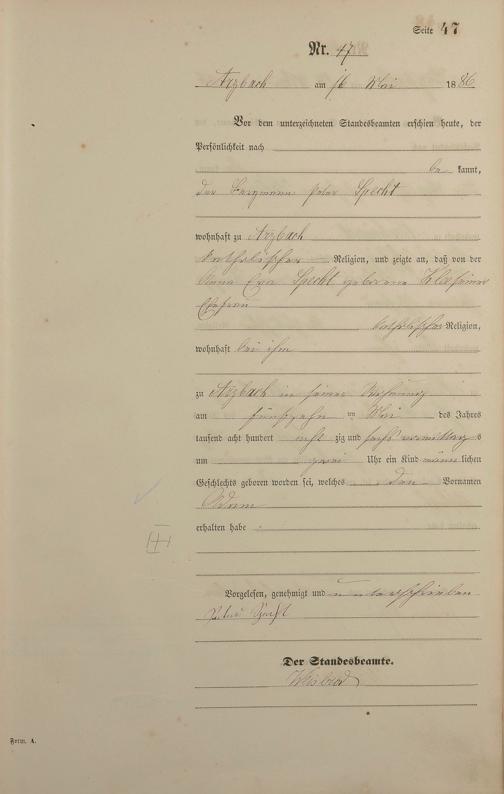 Seite 47
Nr. 47
Arzbach am 16 Mai 1886
Vor dem unterzeichneten Standesbeamten erschien heute, der
Persönlichkeit nach
be kannt,
der Bergmann Peter Specht
wohnhaft zu Arzbach
katholischer Religion, und zeigte an, daß von der
Anna Eva Specht geborene
Ehefrau
katholischer Religion,
wohnhaft bei ihm
zu Arzbach in seiner Wohnung
am fünfzehn ten Mai des Jahres
tausend acht hundert acht zig und sechs vormittag s
um zwei Uhr ein Kind männ lichen
Geschlechts geboren worden sei, welches den Vornamen
Adam
erhalten habe .
Vorgelesen, genehmigt und unterschrieben
Peter Specht
Der Standesbeamte.
Weisbrod
Form. A.